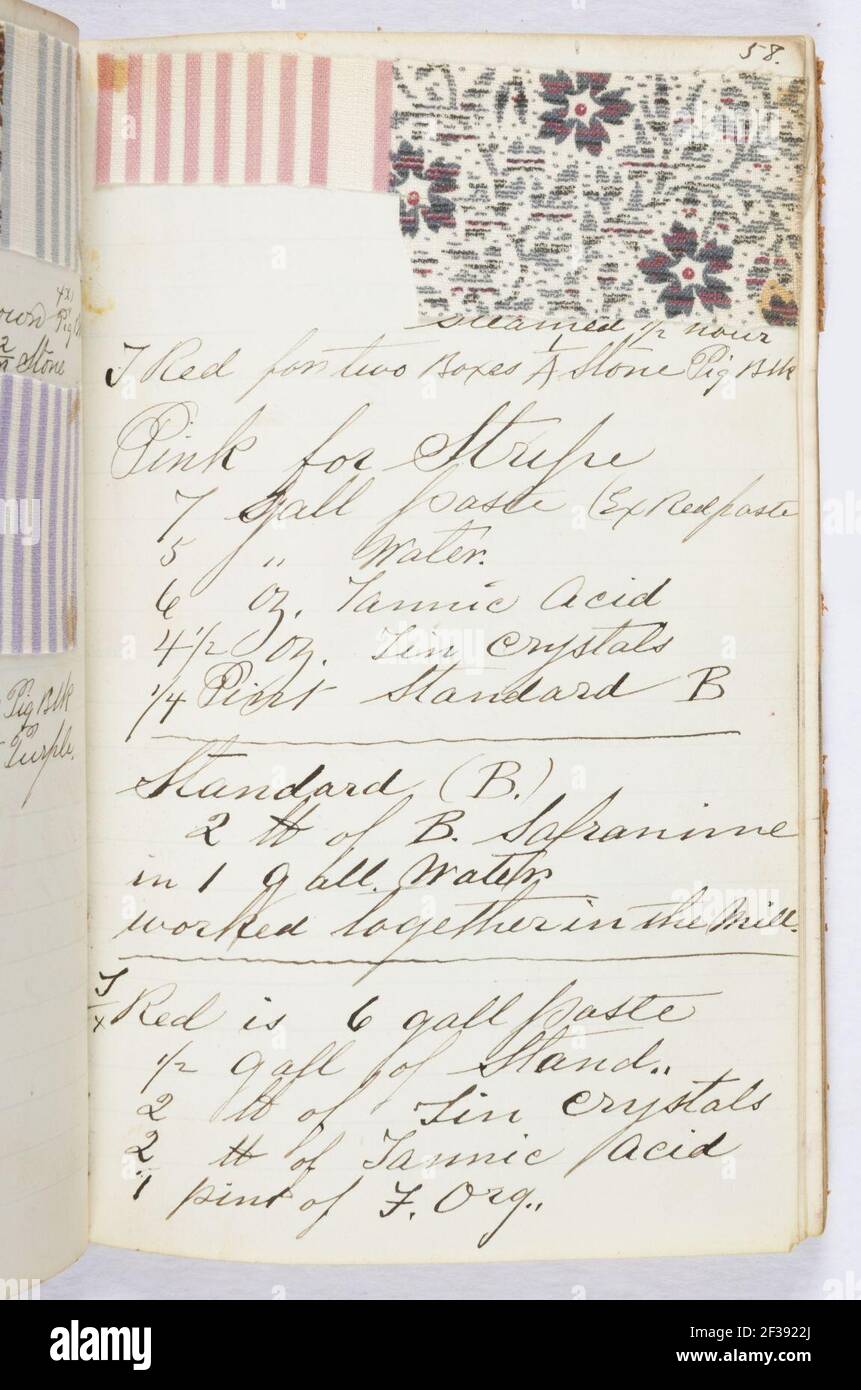 58.
steamed 1/2 hour
T Red for two Boxes 1/A Stone Pig Blk
Pink for Stripe
7 gall paste (Ex Red paste
5 " Water.
6 oz. Tannic Acid
4 1/2 oz. Tin Crystals
1/4 Pint Standard B
Standard (B.)
2 lb of B. Safranine
in 1 gall. Water
worked together in the Mill.
T/x Red is 6 gall paste
1/2 gall of Stand..
2 lb of Tin Crystals
2 lb of Tannic Acid
1 pint of F. Org..
4x
Pig
2
Stone
Pig Blk
Purple.
alamy
Image ID: 2F3922J
www.alamy.com